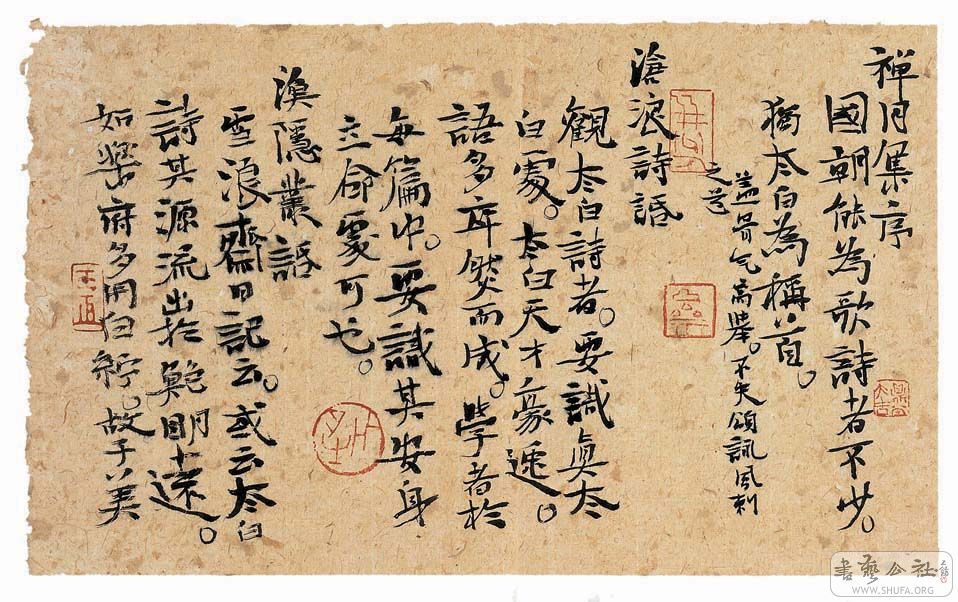 禅月集序
國朝能為歌詩者不少。
獨太白為稱首。
盖骨气高舉。不失頌詠風刺
之道
滄浪詩話
觀太白詩者。要識真太
白處。太白天才豪逸。
語多卒然而成。學者於
每篇中。要識其安身
立命處可也。
漁隱叢話
雪浪齋日記云。或云太白
詩其源流出於鮑明遠。
如樂府多用白紵。故子美
書藝公社
WWW.SHUFA.ORG